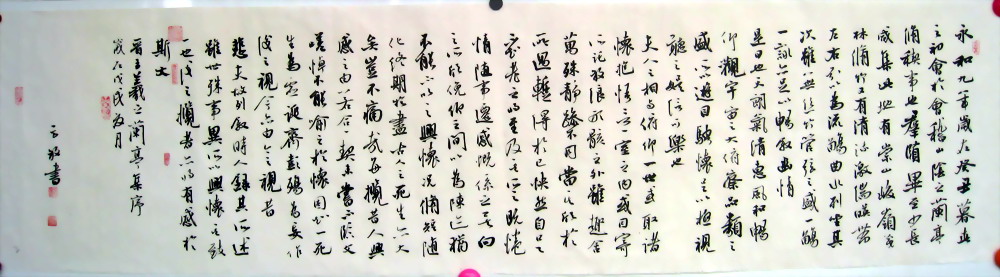 永和九年歲在癸丑暮春
之初會於會稽山陰之蘭亭
脩稧事也羣賢畢至少長
咸集此地有崇山峻領茂
林脩竹又有清流激湍暎帶
左右引以為流觴曲水列坐其
次雖無絲竹管弦之盛一觴
一詠亦足以暢敘幽情
是日也天朗氣清惠風和暢
仰觀宇宙之大俯察品類之
盛所以遊目騁懷足以極視
聽之娛信可樂也
夫人之相與俯仰一世或取諸
懷抱悟言一室之內或因寄
所託放浪形骸之外雖趣舍
萬殊靜躁不同當其欣於
所遇暫得於己快然自足不
知老之將至及其所之既惓
情隨事遷感慨係之矣向
之所欣俛仰之間以為陳迹猶
不能不以之興懷況脩短隨
化終期於盡古人云死生亦大
矣豈不痛哉每攬昔人興
感之由若合一契未嘗不臨文
嗟悼不能喻之於懷固知一死
生為虛誕齊彭殤為妄作
後之視今亦由今之視昔
悲夫故列敘時人錄其所述
雖世殊事異所以興懷其致
一也後之攬者亦將有感於
斯文
晉王羲之蘭亭集序
歲在戊戌夏月
書